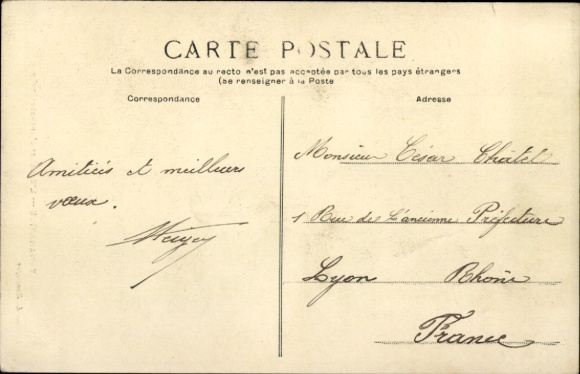 CARTE POSTALE
La Correspondance au recto n'est pas acceptée par tous les pays étrangers
(Se renseigner à la Poste
Correspondance
Adresse
Amitiés et meilleurs
vœux.
Monsieur César Châtel
1 Rue de l'ancienne Préfecture
Lyon Rhône
France